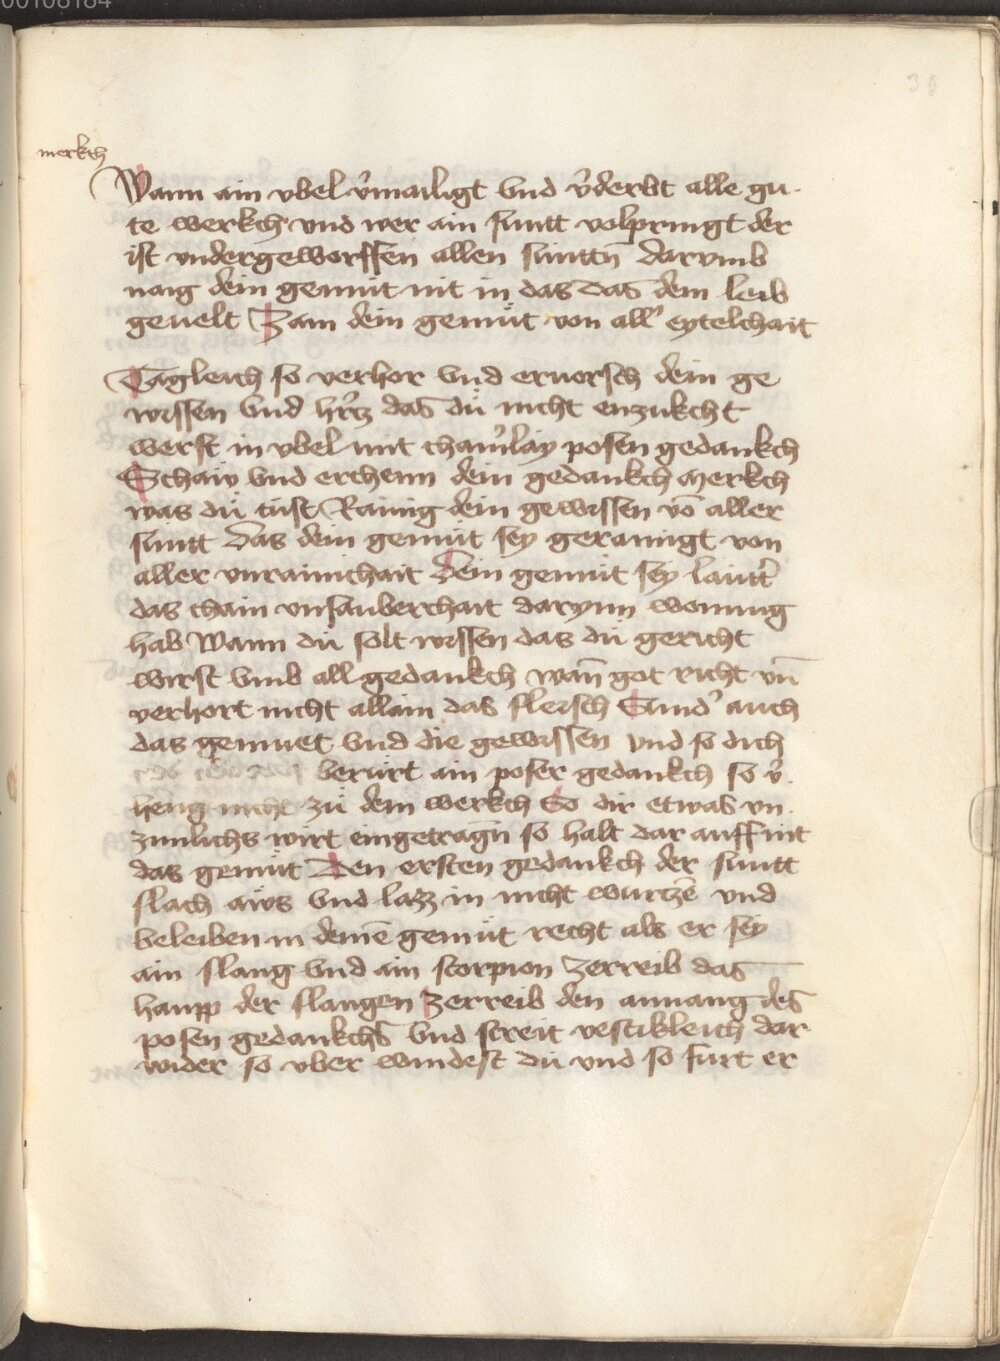 00108184
30
merkch
Wann ain vbel v̉mailigt vnd v̉derbt alle gu-
te werkch vnd wer ain suntt volpringt der
ist vndergeworffen allen sunttn̄ darvmb
naig dein gemüt nit in das das dem leib
geuelt Zam dein gemüt von all̉ eytelchait
Tägleich so verhor vnd eruorsch dein ge
wissen vnd hr̉tz das dü nicht enzukcht
werst in vbel mit chain̉lay posen gedankch
Schaw vnd erchenn dein gedankch merkch
was dü tüst Rainig dein gewissen vō aller
suntt Das dein gemüt sey gerainigt von
aller vnrainichait Dein gemüt sey lautt̉
das chain vnsauberchait darynn wonung
hab Wann dü solt wissen das dü gericht
wirst vmb all gedankch wan̄ got richt vn̄
verhort nicht allain das fleisch Sund̉ auch
das gemuet vnd die gewissen vnd so dich
berürt ain poser gedankch so v̉
heng nicht zü dem werkch So dir etwas vn
zimlichs wirt eingetragn̄ so halt dar auff nit
das gemüt Den ersten gedankch der suntt
slach aws vnd lazz in nicht wurtzē vnd
beleiben in deinē gemüt recht als er sey
ain slang vnd ain scorpion zerreib das
haupp der slangen Zerreib den anuang des
posen gedankchs vnd streit vestikleich dar
wider so vber windest dü vnd so furt er